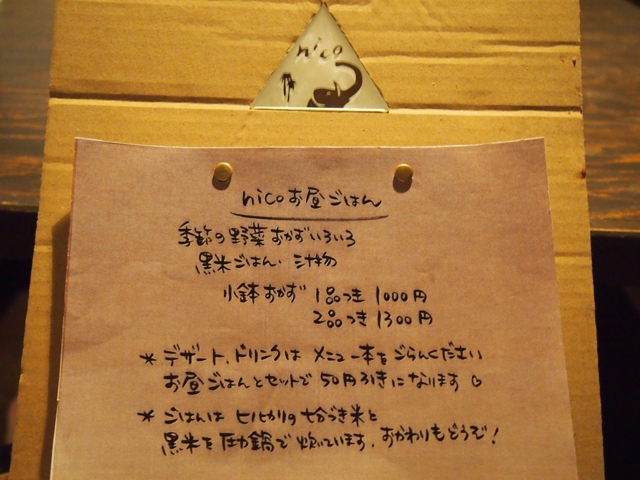 nico
nicoお昼ごはん
季節の野菜おかずいろいろ
黒米ごはん・汁物
小鉢おかず 1品つき 1000円
2品つき 1300円
* デザート、ドリンクは メニュー本をごらんください
お昼ごはんとセットで 50円引きになります
* ごはんは ヒノヒカリの七分づき米と
黒米を圧力鍋で炊いています。おかわりもどうぞ!